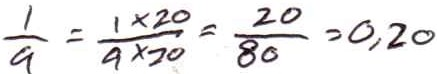 1/9 = 1×20/9×20 = 20/80 = 0,20